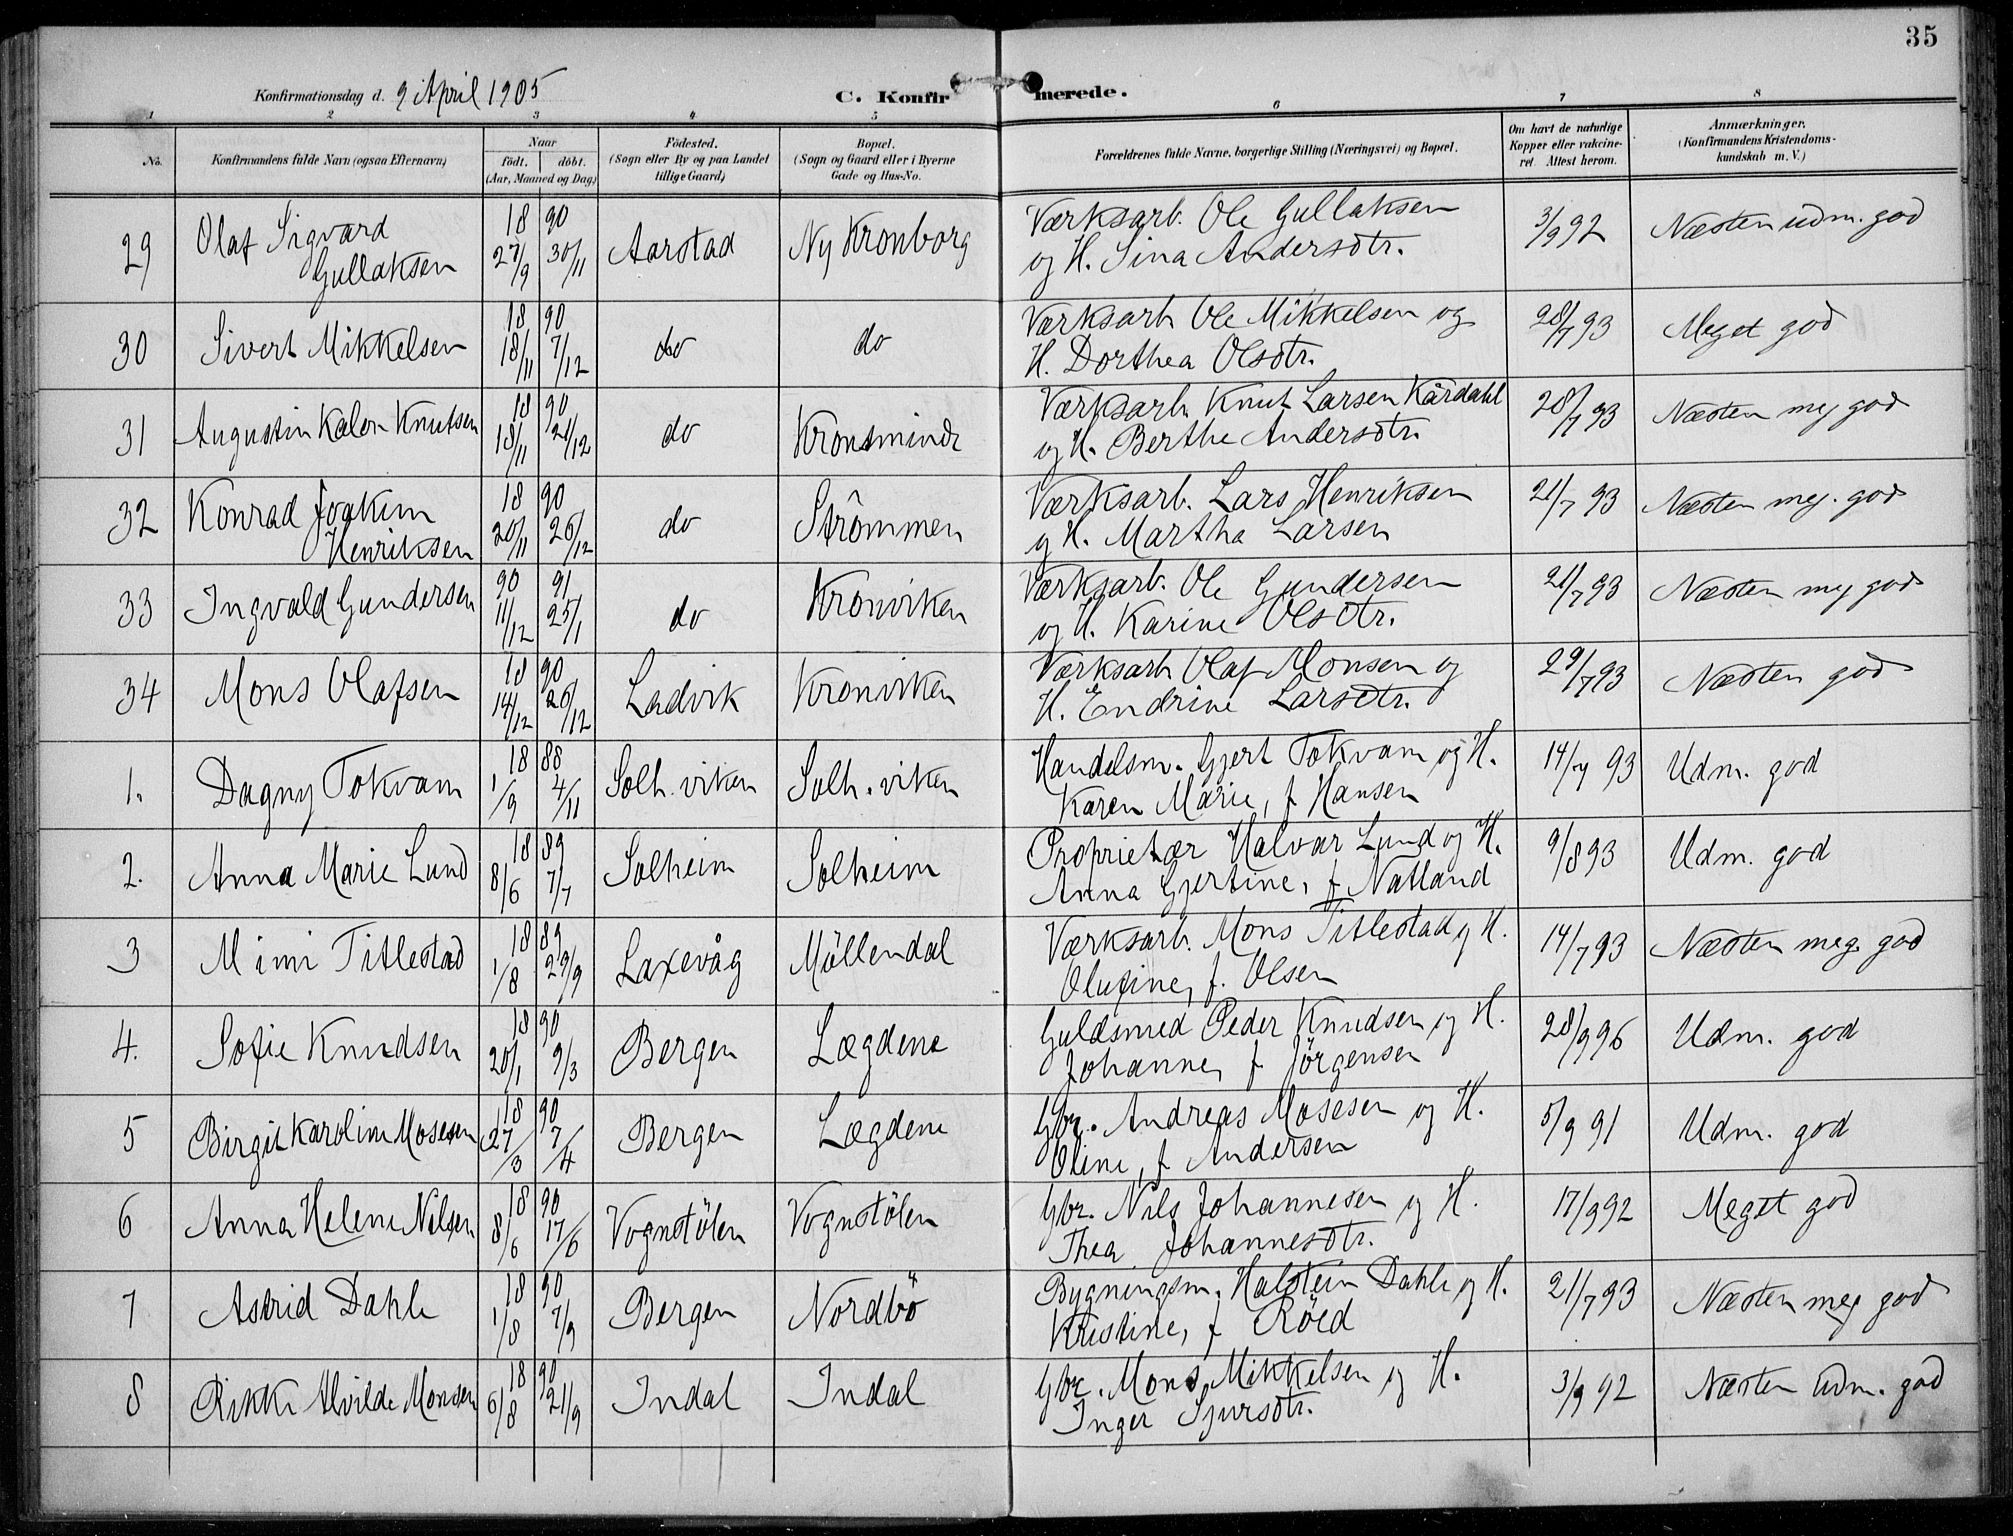 35
Konfirmationsdag d. 9 April 1905
C. Konfirmerede.
1 2 3 4 5 6 7 8
No. | Konfirmandens fulde Navn (ogsaa Efternavn) | Naar født. døbt. (Aar, Maaned og Dag) | Fødested. (Sogn eller By og paa Landet tillige Gaard) | Bopæl. (Sogn og Gaard eller i Byerne Gade og Hus-No. | Forældrenes fulde Navne, borgerlige Stilling (Næringsvei) og Bopæl. | Om havt de naturlige Kopper eller vakcineret. Attest herom. | Anmærkninger. (Konfirmandens Kristendomskundskab m. V.)
29 Olaf Sigvard Gullaksen 18 90 27/9 30/11 Aarstad Ny Kronborg Værksarb. Ole Gullaksen og H. Sina Andersdtr. 3/9 92 Næsten udm. god
30 Sivert Mikkelsen 18 90 18/11 7/12 do do Værksarb Ole Mikkelsen og H. Dorthea Olsdtr. 28/7 93 Meget god
31 Augustin Kalon Knutsen 18 90 18/11 21/12 do Kronsminde Værksarb. Knut Larsen Kårdahl og H. Berthe Andersdtr. 28/7 93 Næsten meg god
32 Konrad Joakim Henriksen 18 90 20/11 26/12 do Strömmen Værksarb. Lars Henriksen og H. Martha Larsen 21/7 93 Næsten meg. god
33 Ingvald Gundersen 90 91 11/12 25/1 do Kronviken Værksarb. Ole Gundersen og H. Karine Olsdtr. 21/7 93 Næsten meg god
34 Mons Olafsen 18 90 14/12 26/12 Ladvik Kronviken Værksarb Olaf Monsen og H. Endrine Larsdtr. 29/7 93 Næsten god
1. Dagny Tokvam 18 88 1/9 4/11 Solh. viken Solh. viken Handelsm. Gjert Tokvam og H. Karen Marie, f Hansen 14/7 93 Udm. god
2. Anna Marie Lund 18 89 8/6 7/7 Solheim Solheim Proprietær Halvar Lund og H. Anna Gjertine, f Natland 9/8 93 Udm. god
3 Mimi Titlestad 18 89 1/8 29/9 Laxevåg Möllendal Værksarb. Mons Titlestad og H. Olufine, f. Olsen 14/7 93 Næsten meg. god
4. Sofie Knudsen 18 90 20/1 9/3 Bergen Lægdene Guldsmed Peder Knudsen og H. Johanne, f Jörgensen 28/9 96 Udm. god
5 Birgit Karoline Mosesen 18 90 27/3 7/4 Bergen Lægdene Gbr. Andreas Mosesen og H. Oline, f Andersen 5/9 91 Udm. god
6 Anna Helene Nilsen 18 90 8/6 17/6 Vognstölen Vognstölen Gbr. Nils Johannesen og H. Thea Johannesdtr. 17/9 92 Meget god
7 Astrid Dahle 18 90 1/8 7/9 Bergen Nordbö Bygningsm. Halstein Dahle og H. Kristine, f Röed 21/7 93 Næsten meg god
8 Rikke Alvilde Monsen 18 90 6/8 21/9 Indal Indal Gbr. Mons Mikkelsen og H. Inger Sjursdtr. 3/9 92 Næsten udm. god